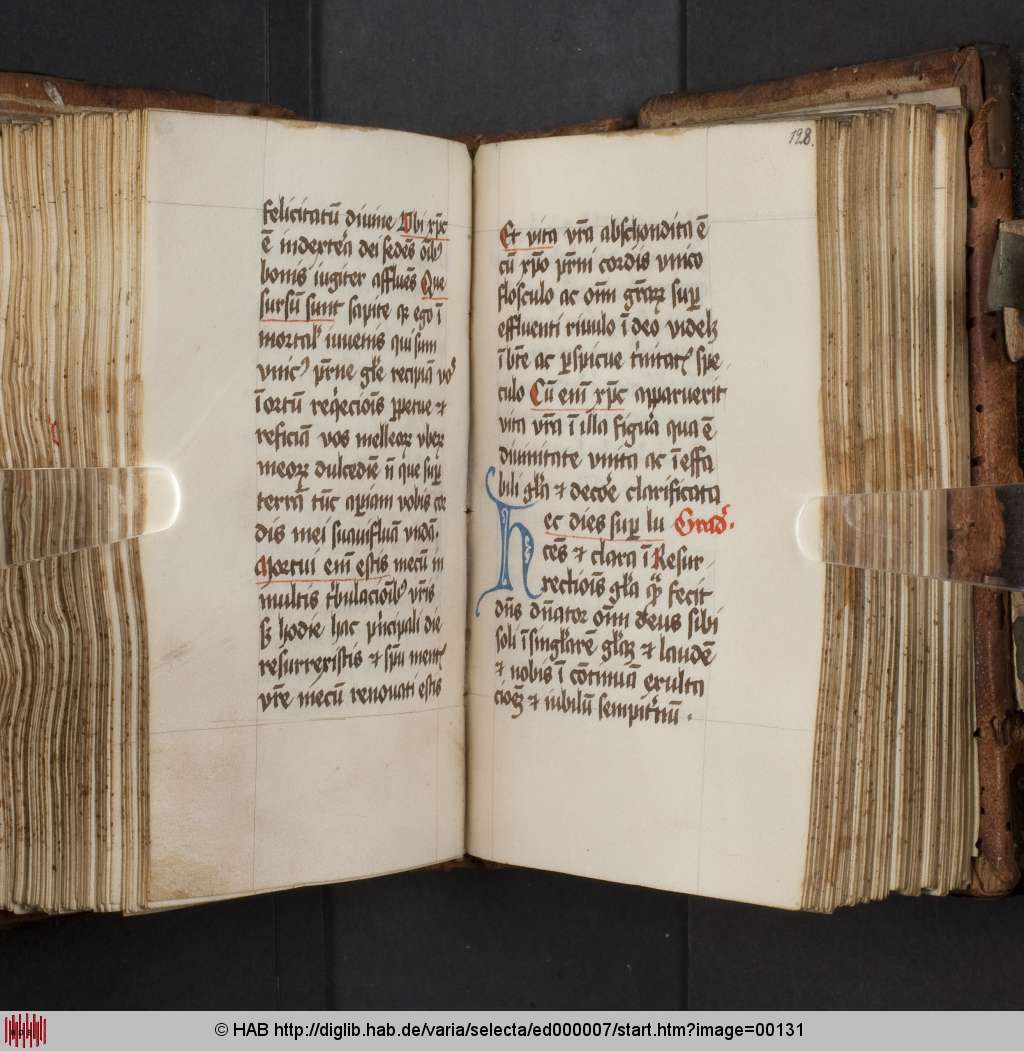 felicitatū diuine Vbi xp̄c
ē indextera dei sedēs oīb9
bonis iugiter affluēs Que
sursū sunt sapite qꝛ ego ī
mortalꝭ iuuenis qui sum
vnic9 pr̄ne glīe recipiā vo9
ī ortū reqͥecioīs ꝑpetue ⁊
reficiā vos melleoꝝ vbeꝝ
meoꝝ dulcedīe nō que suꝑ
terrā tūc aꝑiam vobis cor
dis mei suauifluā vndā.
Mortui eīm estis mecū in
multis tͥbulacōib9 vr̄is
sꝫ hodie hac pͥncipali die
resurrexistis ⁊ spū mentꝭ
vr̄e mecū renouati estis
128.
Et vita vr̄a abschondita ē
cū xp̄o pr̄ni cordis vnico
flosculo ac om̄i gr̄aꝝ suꝑ
effluenti riuulo ī deo videlꝫ
ī bt̄e ac ꝑspicue tͥnitatꝭ spe
culo Cū eīm xp̄c apparuerit
vita vr̄a ī illa figura qua ē
diuinitate vnita ac īeffa
bili glīa ⁊ decore clarificata
Hec dies suꝑ lu Grad9.
cēs ⁊ clara ī Resur
rectiois glīa qͣꝫ fecit
dn̄s dn̄ator om̄i deus sibi
soli ī singlarē glīaꝫ ⁊ laudē
⁊ nobis ī cōtinuā exulta
cioēꝫ ⁊ iubilū sempitͥnū.
© HAB http://diglib.hab.de/varia/selecta/ed000007/start.htm?image=00131